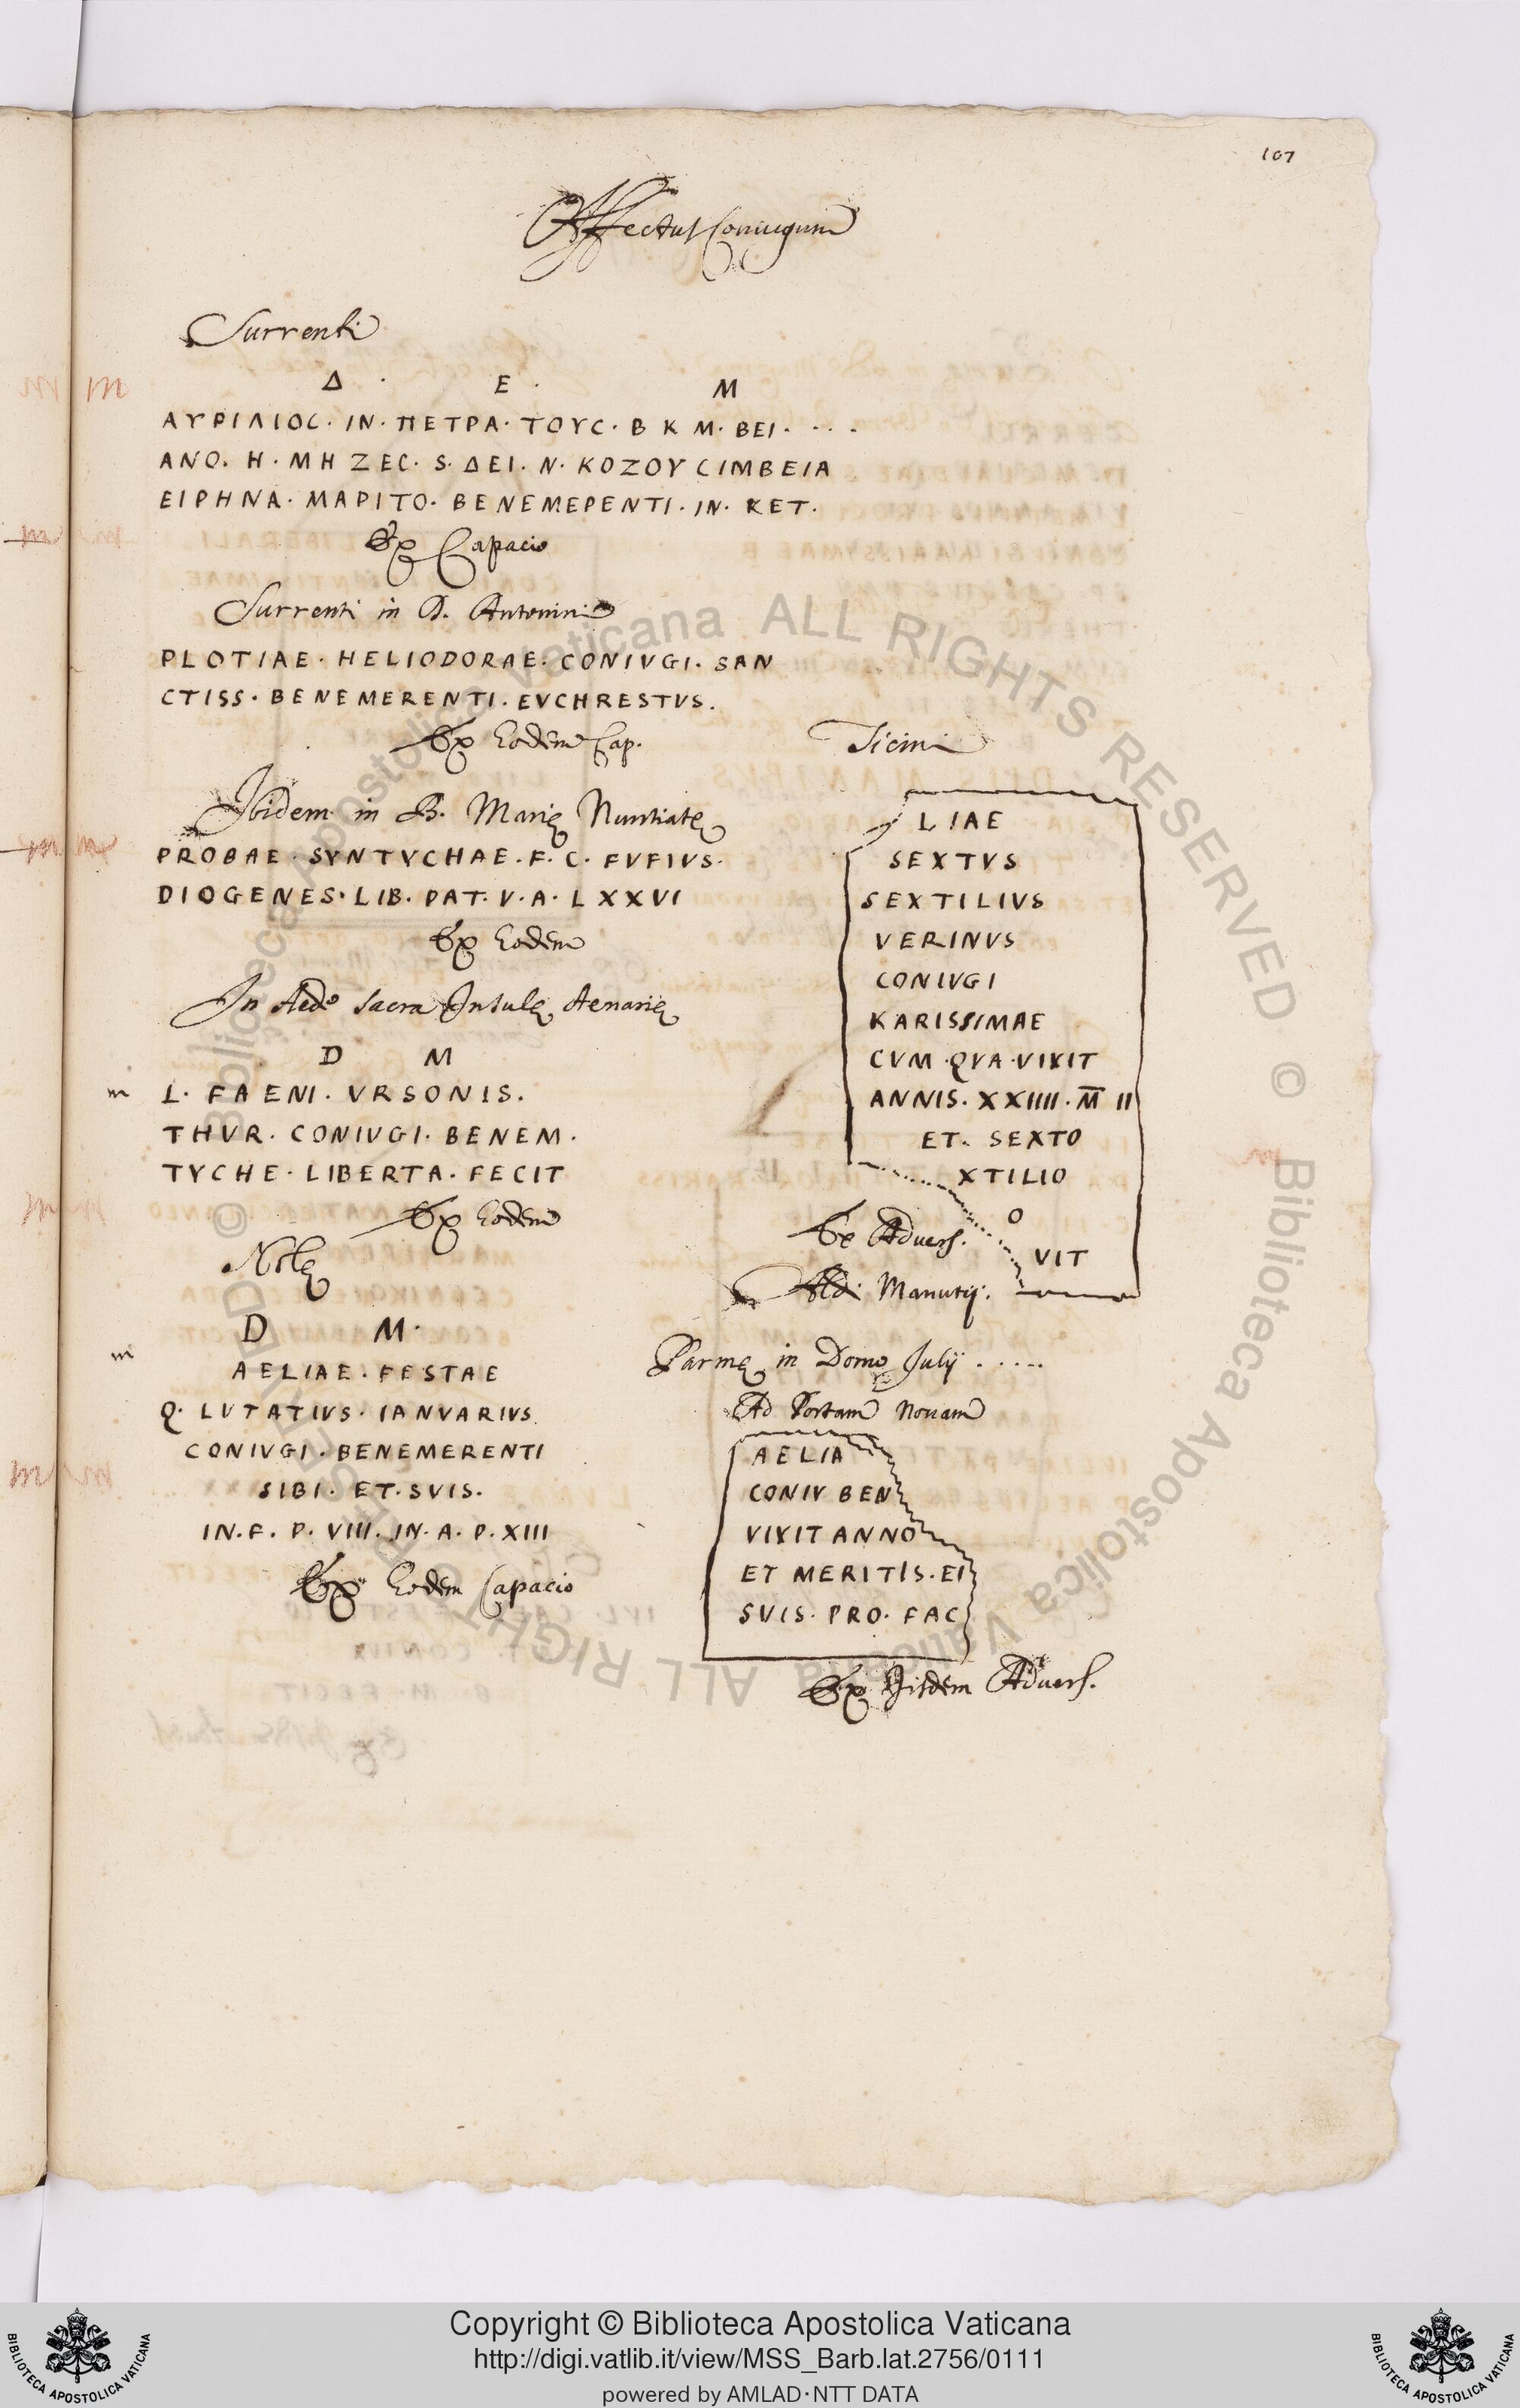 107
Affectus Coniugum
Surrenti
Δ · E · M
ΑΥΡΙΛΙΟC · ΙΝ · ΠΕΤΡΑ · ΤΟΥC · Β Κ Μ · ΒΕΙ · · · ·
ΑΝΟ · Η · ΜΗ ΖΕC · S · ΔΕΙ · Ν · ΚΟΖΟΥ CΙΜΒΕΙΑ
ΕΙΡΗΝΑ · ΜΑΡΙΤΟ · ΒΕΝΕΜΕΡΕΝΤΙ · ΙΝ · ΚΕΤ ·
Ex Capacio
Surrenti in D. Antonini
PLOTIAE · HELIODORAE · CONIVGI · SAN
CTISS · BENEMERENTI · EVCHRESTVS ·
Ex Eodem Cap.
Ibidem in B. Marię Nuntiatę
PROBAE · SYNTYCHAE · F · C · FVFIVS ·
DIOGENES · LIB · PAT · V · A · LXXVI
Ex Eodem
In Aede sacra Insulę Aenarię
D M
m L · FAENI · VRSONIS ·
THVR · CONIVGI · BENEM ·
TYCHE · LIBERTA · FECIT
Ex Eodem
Nolę
D M ·
m
AELIAE · FESTAE
Q · LVTATIVS · IANVARIVS
CONIVGI · BENEMERENTI
SIBI · ET · SVIS ·
IN · F · P · VIII · IN · A · P · XIII
Ex Eodem Capacio
Ticini
LIAE
SEXTVS
SEXTILIVS
VERINVS
CONIVGI
KARISSIMAE
CVM · QVA · VIXIT
ANNIS · XXIIII · M̅ II
ET · SEXTO
XTILIO
O
VIT
Ex Advers.
Aldi Manutij.
Parmę in Domo Julij . . . . .
Ad Portam Nouam
AELIA
CONIV BEN
VIXIT ANNO
ET MERITIS · EI
SVIS · PRO · FAC
Ex Iisdem Aduers.
© Biblioteca Apostolica Vaticana ALL RIGHTS RESERVED © Biblioteca Apostolica Vaticana ALL RIGHTS RESERVED
BIBLIOTECA APOSTOLICA VATICANA
Copyright © Biblioteca Apostolica Vaticana
http://digi.vatlib.it/view/MSS_Barb.lat.2756/0111
powered by AMLAD·NTT DATA
BIBLIOTECA APOSTOLICA VATICANA